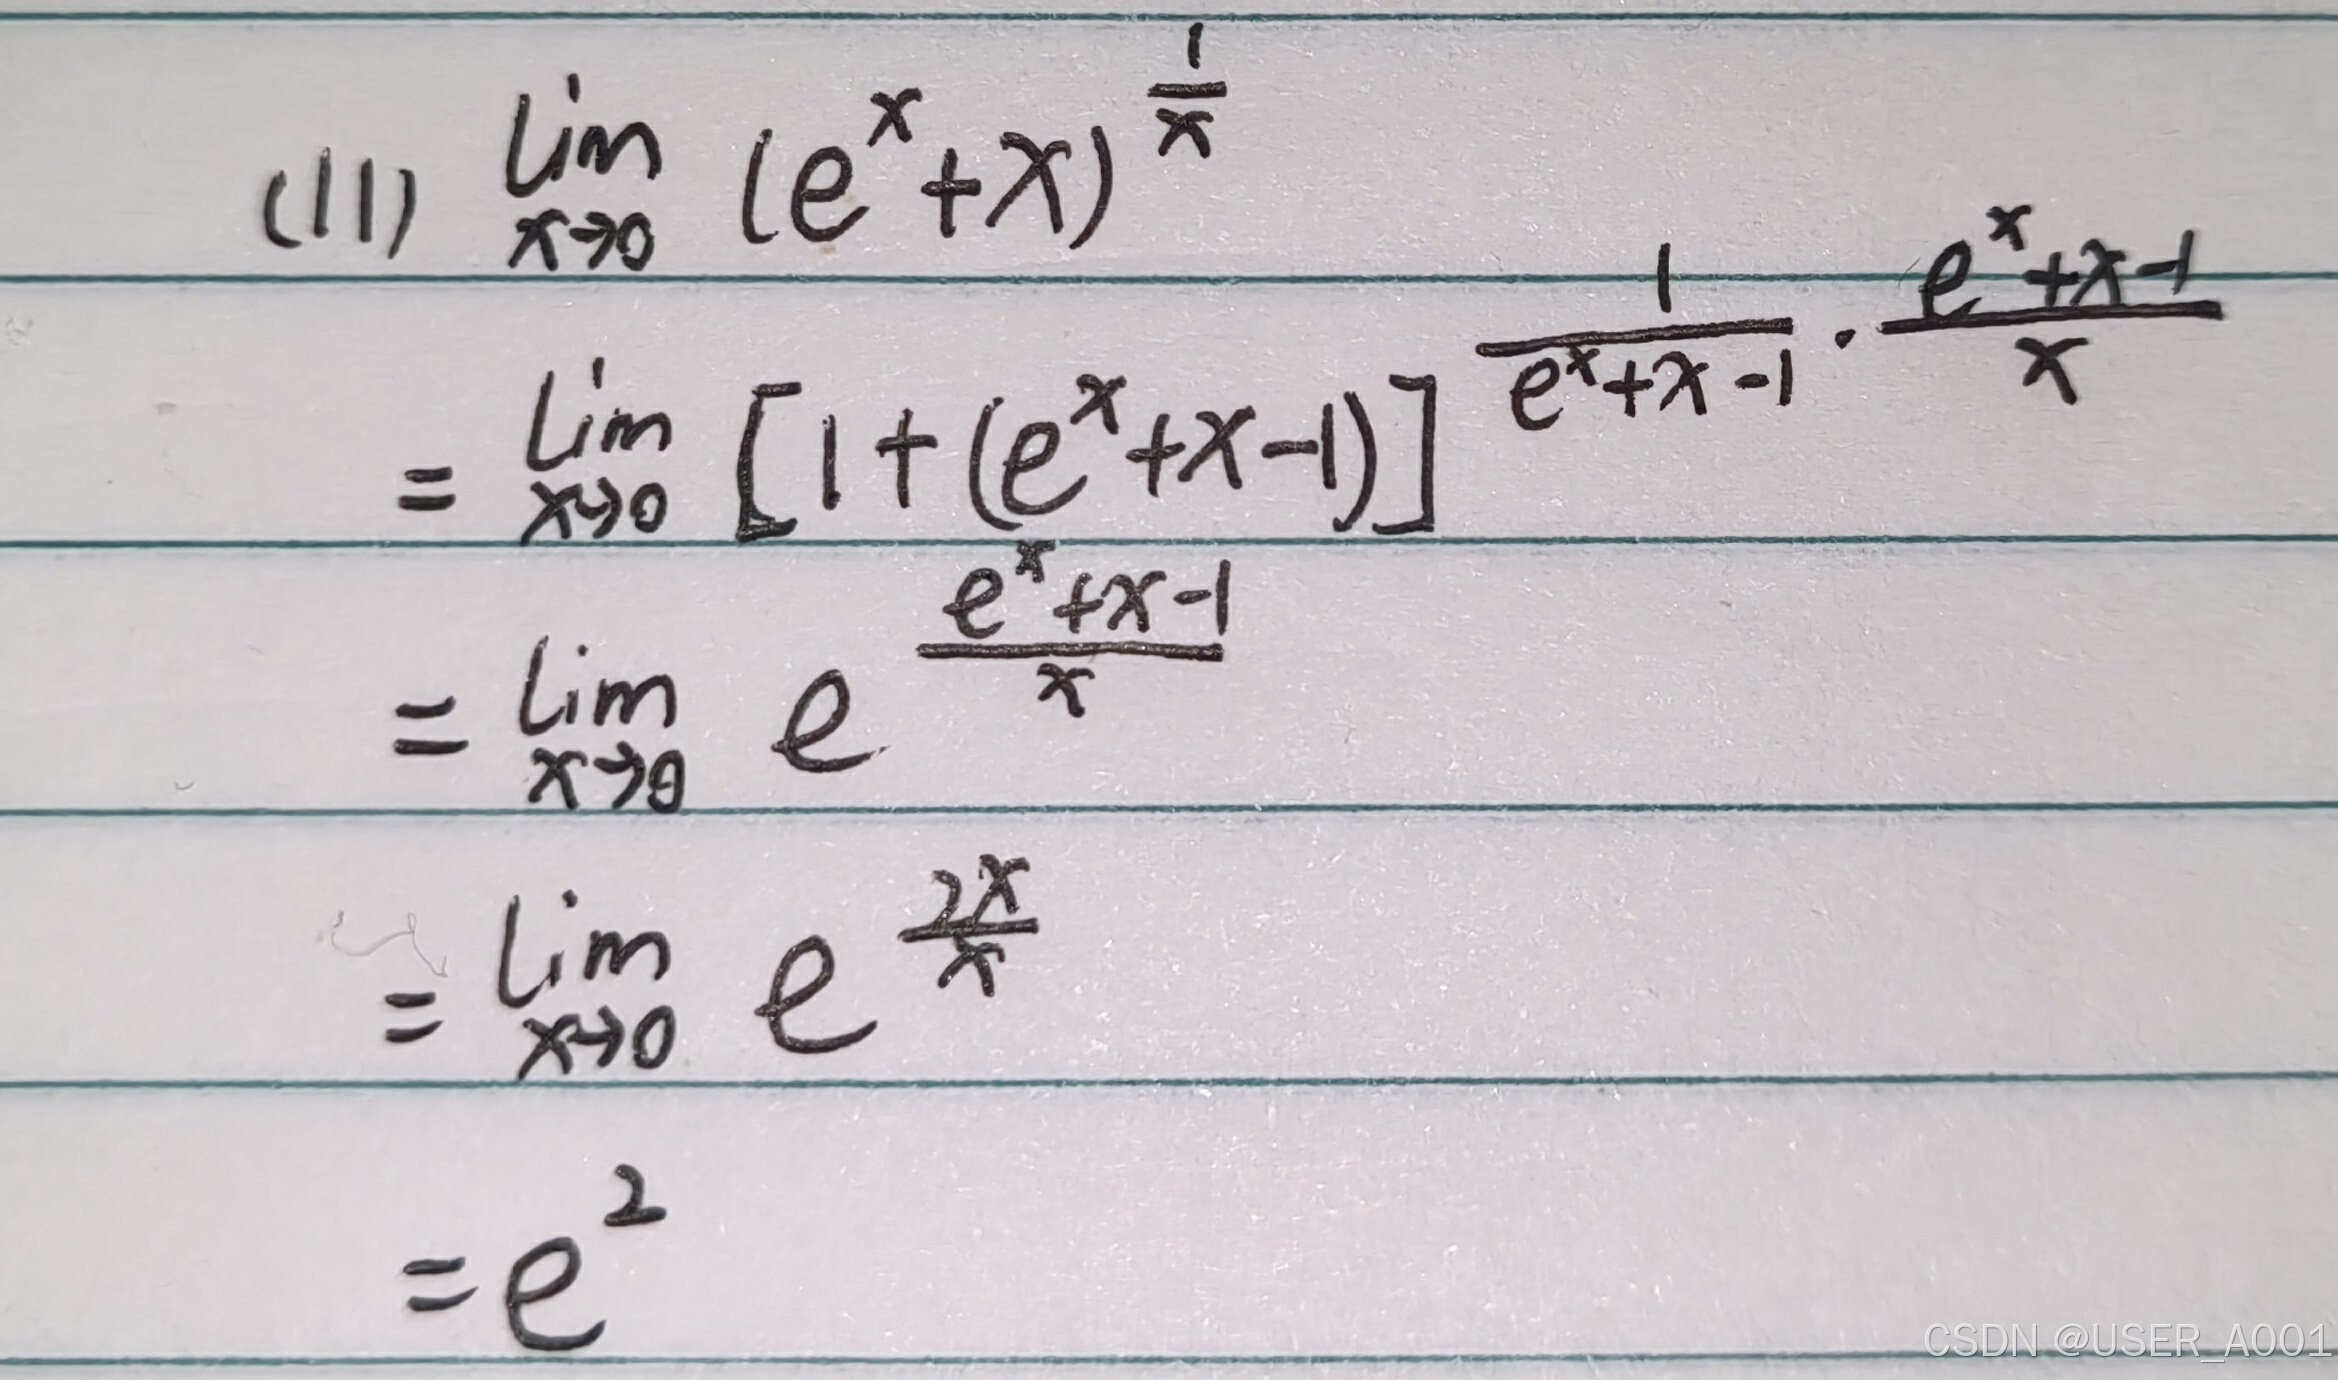 (11) lim_{x→0} (e^x+x)^{1/x}
= lim_{x→0} [1+(e^x+x-1)]^{1/(e^x+x-1) · (e^x+x-1)/x}
= lim_{x→0} e^{(e^x+x-1)/x}
= lim_{x→0} e^{2x/x}
= e^2
CSDN @USER_A001